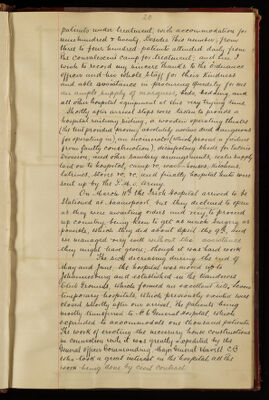 20
patients under treatment, with accommodation for
nine hundred & twenty. Besides this number, from
three to four hundred patients attended daily from
the Convalescent Camp for treatment, and here I
wish to record my sincere thanks to the Ordnance
Officers and his whole Staff for their kindness
and able assistance in procuring quickly for me
an ample supply of marquees, beds, bedding, and
all other hospital equipment at this very trying time.
Shortly after arrival steps were taken to provide a
hospital railway siding, a wooden operating theatre
(the tent provided proving absolutely useless and dangerous
for operating in) an incinerator (which proved a failure
from faulty construction), disinfectory sheds for Enteric
Division, and other sanitary arrangements, water supply
laid on to hospital, camp or wash houses, kitchens,
latrines, stores &c, &c, and finally hospital tents were
sent up by the P.M.O. Army.
On March 18th the Irish hospital arrived to be
stationed at Naauwpoort but they declined to open
as they were awaiting orders and very to proceed
up country, being keen to get as much surgery as
possible, which they did about April the 9th, and
we managed very well without the assistance
they might have given, though it was hard work.
The sick decreasing during the end of
May and June the hospital was moved up to
Johannesburg and established in the Wanderers
Club Grounds, which formed an excellent site, seven
temporary hospitals, which previously existed were
closed shortly after our arrival, the patients being
mostly transferred to No. 6 General Hospital, which
expanded to accommodate one thousand patients.
The work of erecting the necessary house constructions
in connection with it was greatly expedited by the
General Officer Commanding, Major General Wavell C.B
who took a great interest in the hospital, all the
work being done by Civil Contract.